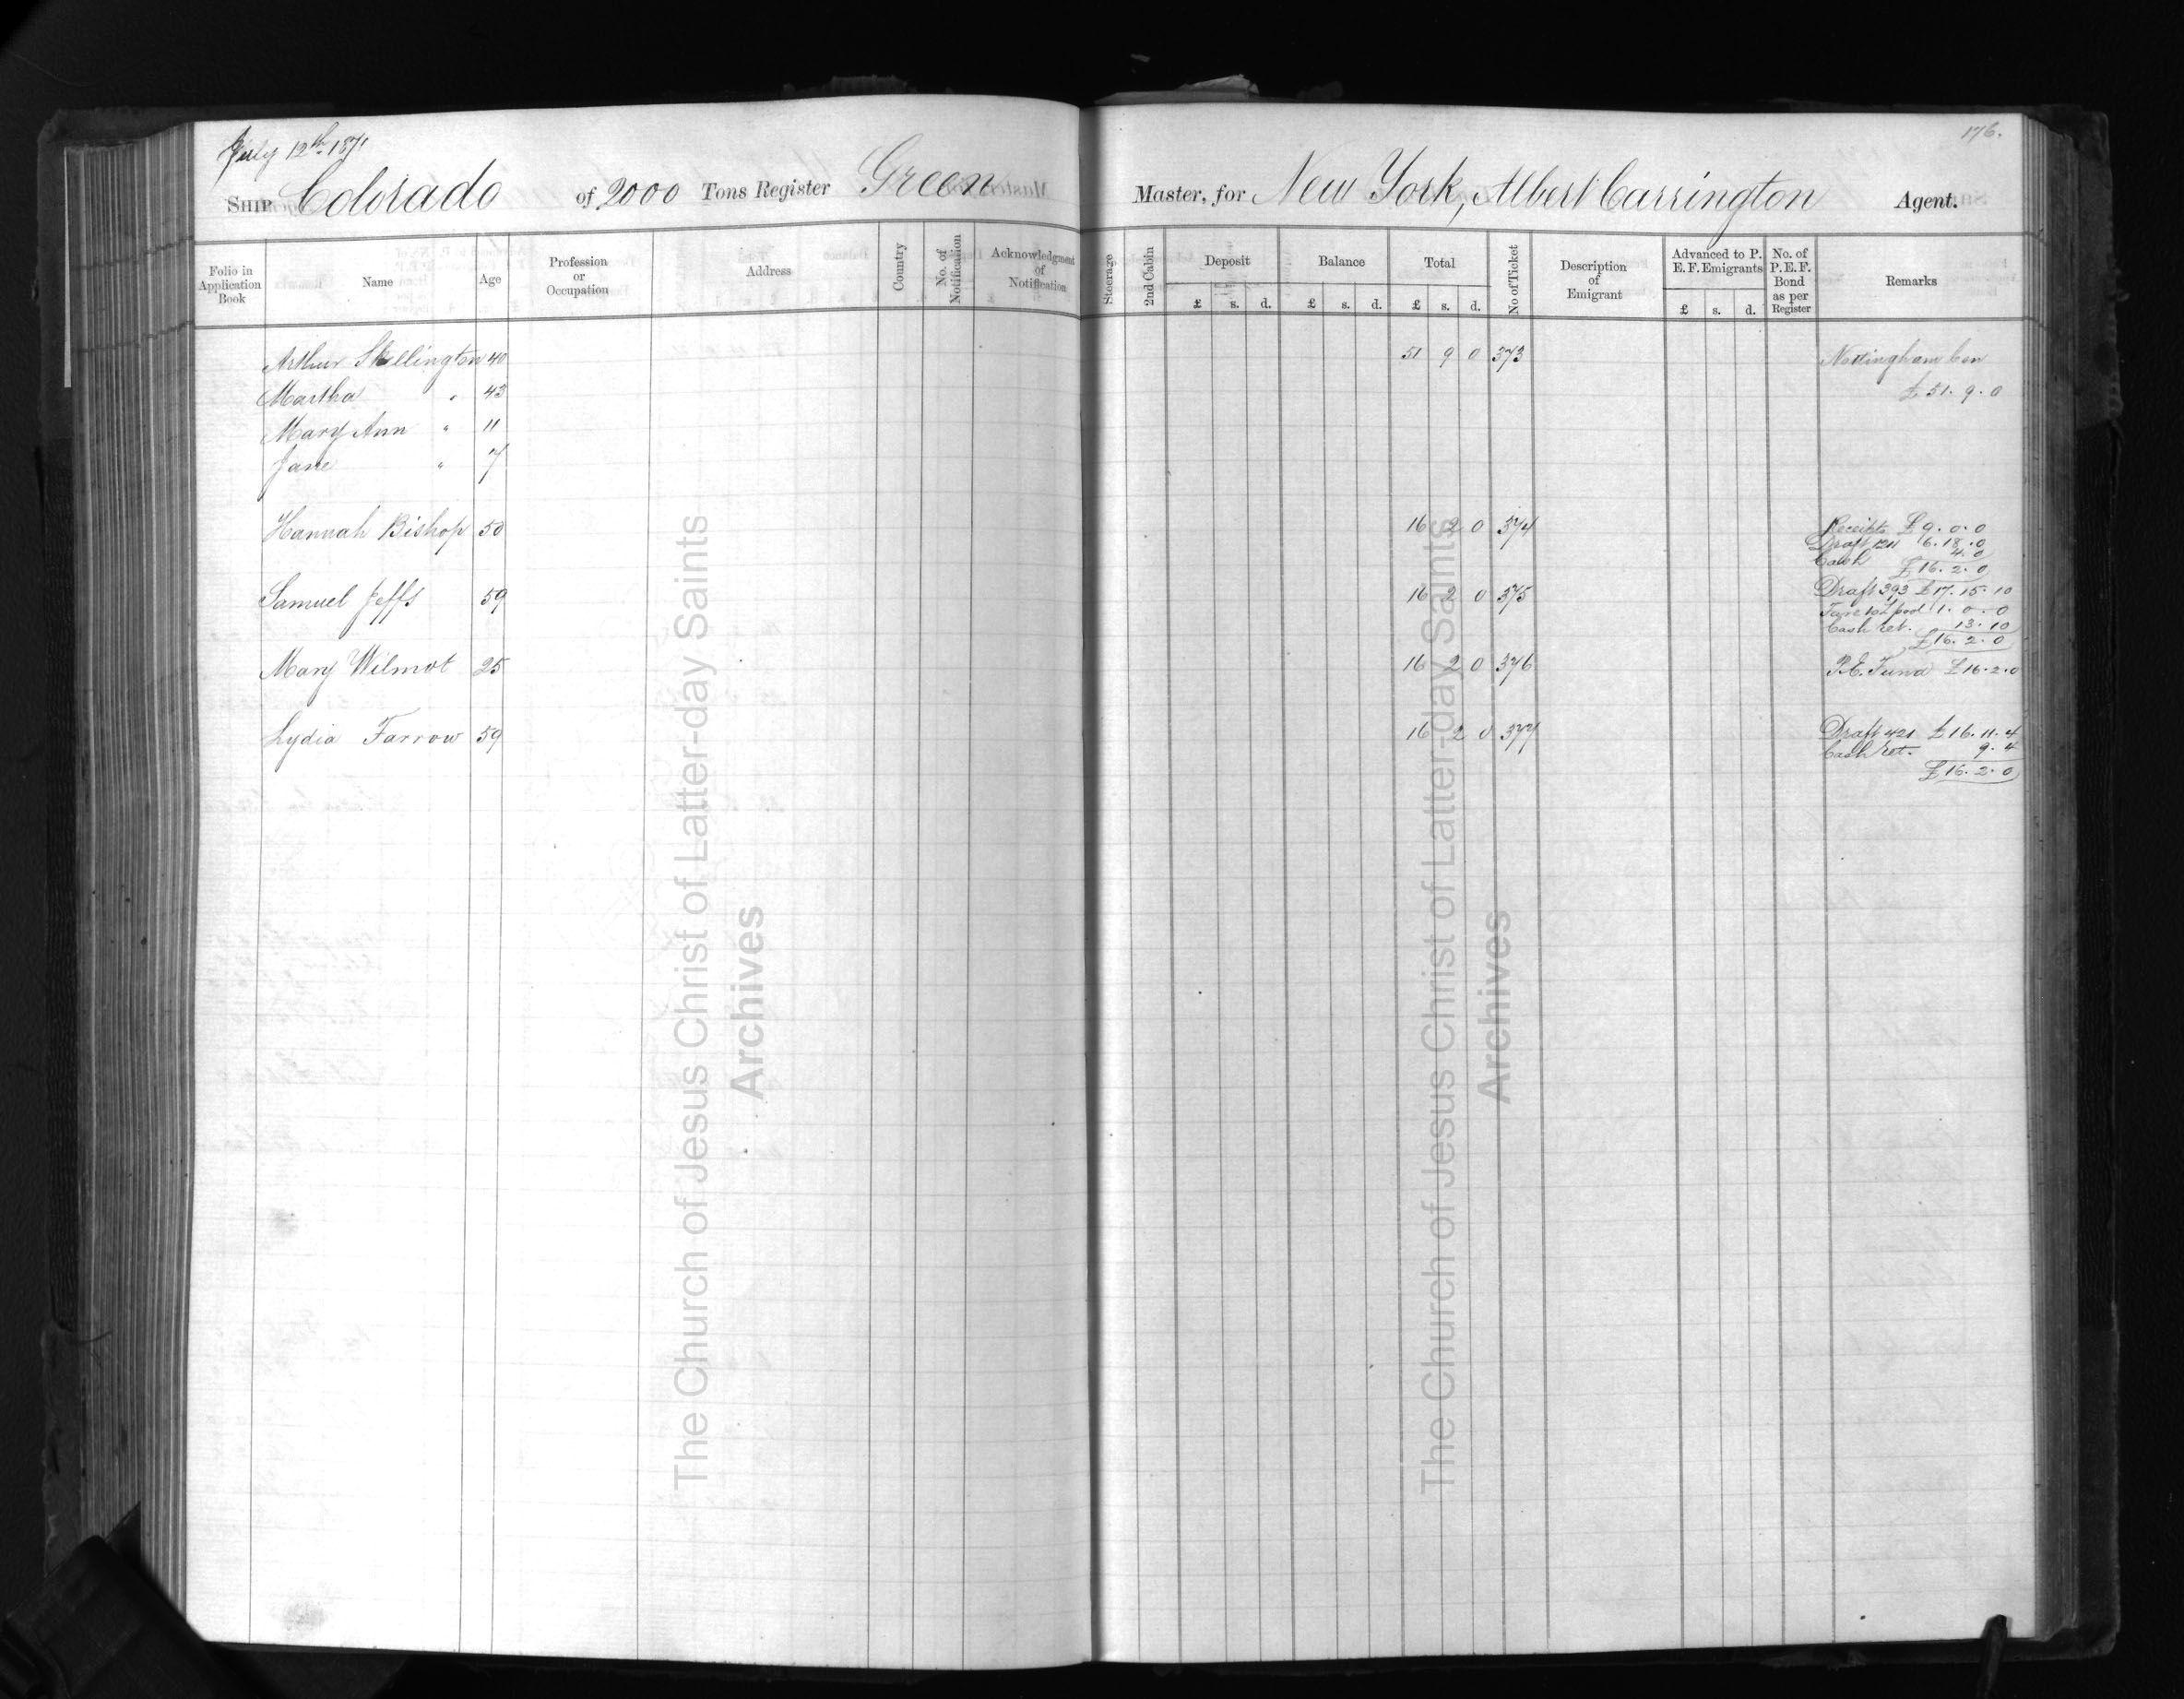 July 12th 1871
176.
SHIP Colorado of 2000 Tons Register Green Master, for New York, Albert Carrington Agent.
Folio in Application Book Name Age Profession or Occupation Address Country No. of Notification Acknowledgment of Notification Steerage 2nd Cabin Deposit Balance Total No of Ticket Description of Emigrant Advanced to P. E. F. Emigrants No. of P. E. F. Bond as per Register Remarks
£ s. d. £ s. d. £ s. d. £ s. d.
Arthur Skellington 40 51 9 0 373 Nottingham Con
Martha " 43 £51. 9. 0
Mary Ann " 11
Jane " 7
Hannah Bishop 50 16 2 0 374 Receipts £9. 0. 0
Draft 1211 6. 18. 0
Cash 4. 0
£16. 2. 0
Samuel Jeffs 59 16 2 0 375 Draft 393 £17. 15. 10
Fare to L'pool 1. 0. 0
Cash ret. 13. 10
£16. 2. 0
Mary Wilmot 25 16 2 0 376 P.E. Fund £16. 2. 0
Lydia Farrow 59 16 2 0 377 Draft 421 £16. 11. 4
Cash ret. 9. 4
£16. 2. 0
The Church of Jesus Christ of Latter-day Saints
Archives
The Church of Jesus Christ of Latter-day Saints
Archives